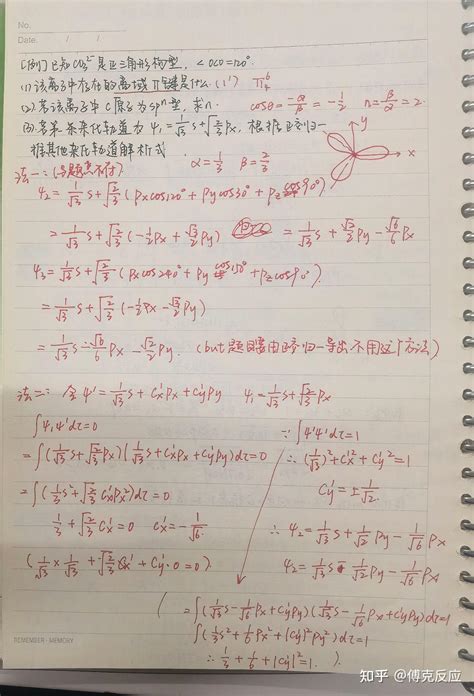 No.
Date. / /
[例] 已知CO₃²⁻是正三角形构型, ∠OCO=120°.
(1) 该离子中存在的离域π键是什么. (1') π₄⁶
(2) 若该离子中C原子为spⁿ型, 求n. cosθ=-α/β=-1/2 n=β/α=2.
(3) 若某一条杂化轨道为 ψ₁=1/√3 s+√(2/3) Px, 根据正交归一
推其他杂化轨道解析式
α=1/3 β=2/3
y
x
法一: (与题意不符)
ψ₂=1/√3 s+√(2/3) (Pxcos120°+Pycos30°+Pzcos90°)
=1/√3 s+√(2/3) (-1/2Px+√3/2Py) =1/√3 s+√2/2Py-√6/6Px
ψ₃=1/√3 s+√(2/3) (Pxcos240°+Pycos150°+Pzcos90°).
=1/√3 s+√(2/3) (-1/2Px-√3/2Py)
=1/√3 s-√6/6 Px-√2/2Py. (but题目要由正交归一导出不用这个方法)
法二: 令ψ'=1/√3 s+Cx'Px+Cy'Py ψ₁=1/√3 s+√(2/3)Px
∫ψ₁ψ'dτ=0 ∵∫ψ'ψ'dτ=1
=∫(1/√3 s+√(2/3)Px)(1/√3 s+Cx'Px+Cy'Py)dτ=0 ∴(1/√3)²+Cx'²+Cy'²=1
=∫(1/3 s²+√(2/3)Cx'Px²)dτ=0 Cy'=±1/√2.
1/3+√(2/3)Cx'=0 Cx'=-1/√6. ∴ψ₂=1/√3 s+1/√2Py-1/√6Px
(1/√3×1/√3+√(2/3)Cx'+Cy'·0=0) ψ₂=1/√3 s-1/√2Py-1/√6Px.
(=∫(1/√3 s-1/√6Px+Cy'Py)(1/√3 s-1/√6Px+Cy'Py)dτ
∫(1/3 s²+1/6Px²+|Cy'|²Py²)dτ
∴1/3+1/6+|Cy'|²=1.)
REMEMBER · MEMORY
知乎 @傅克反应